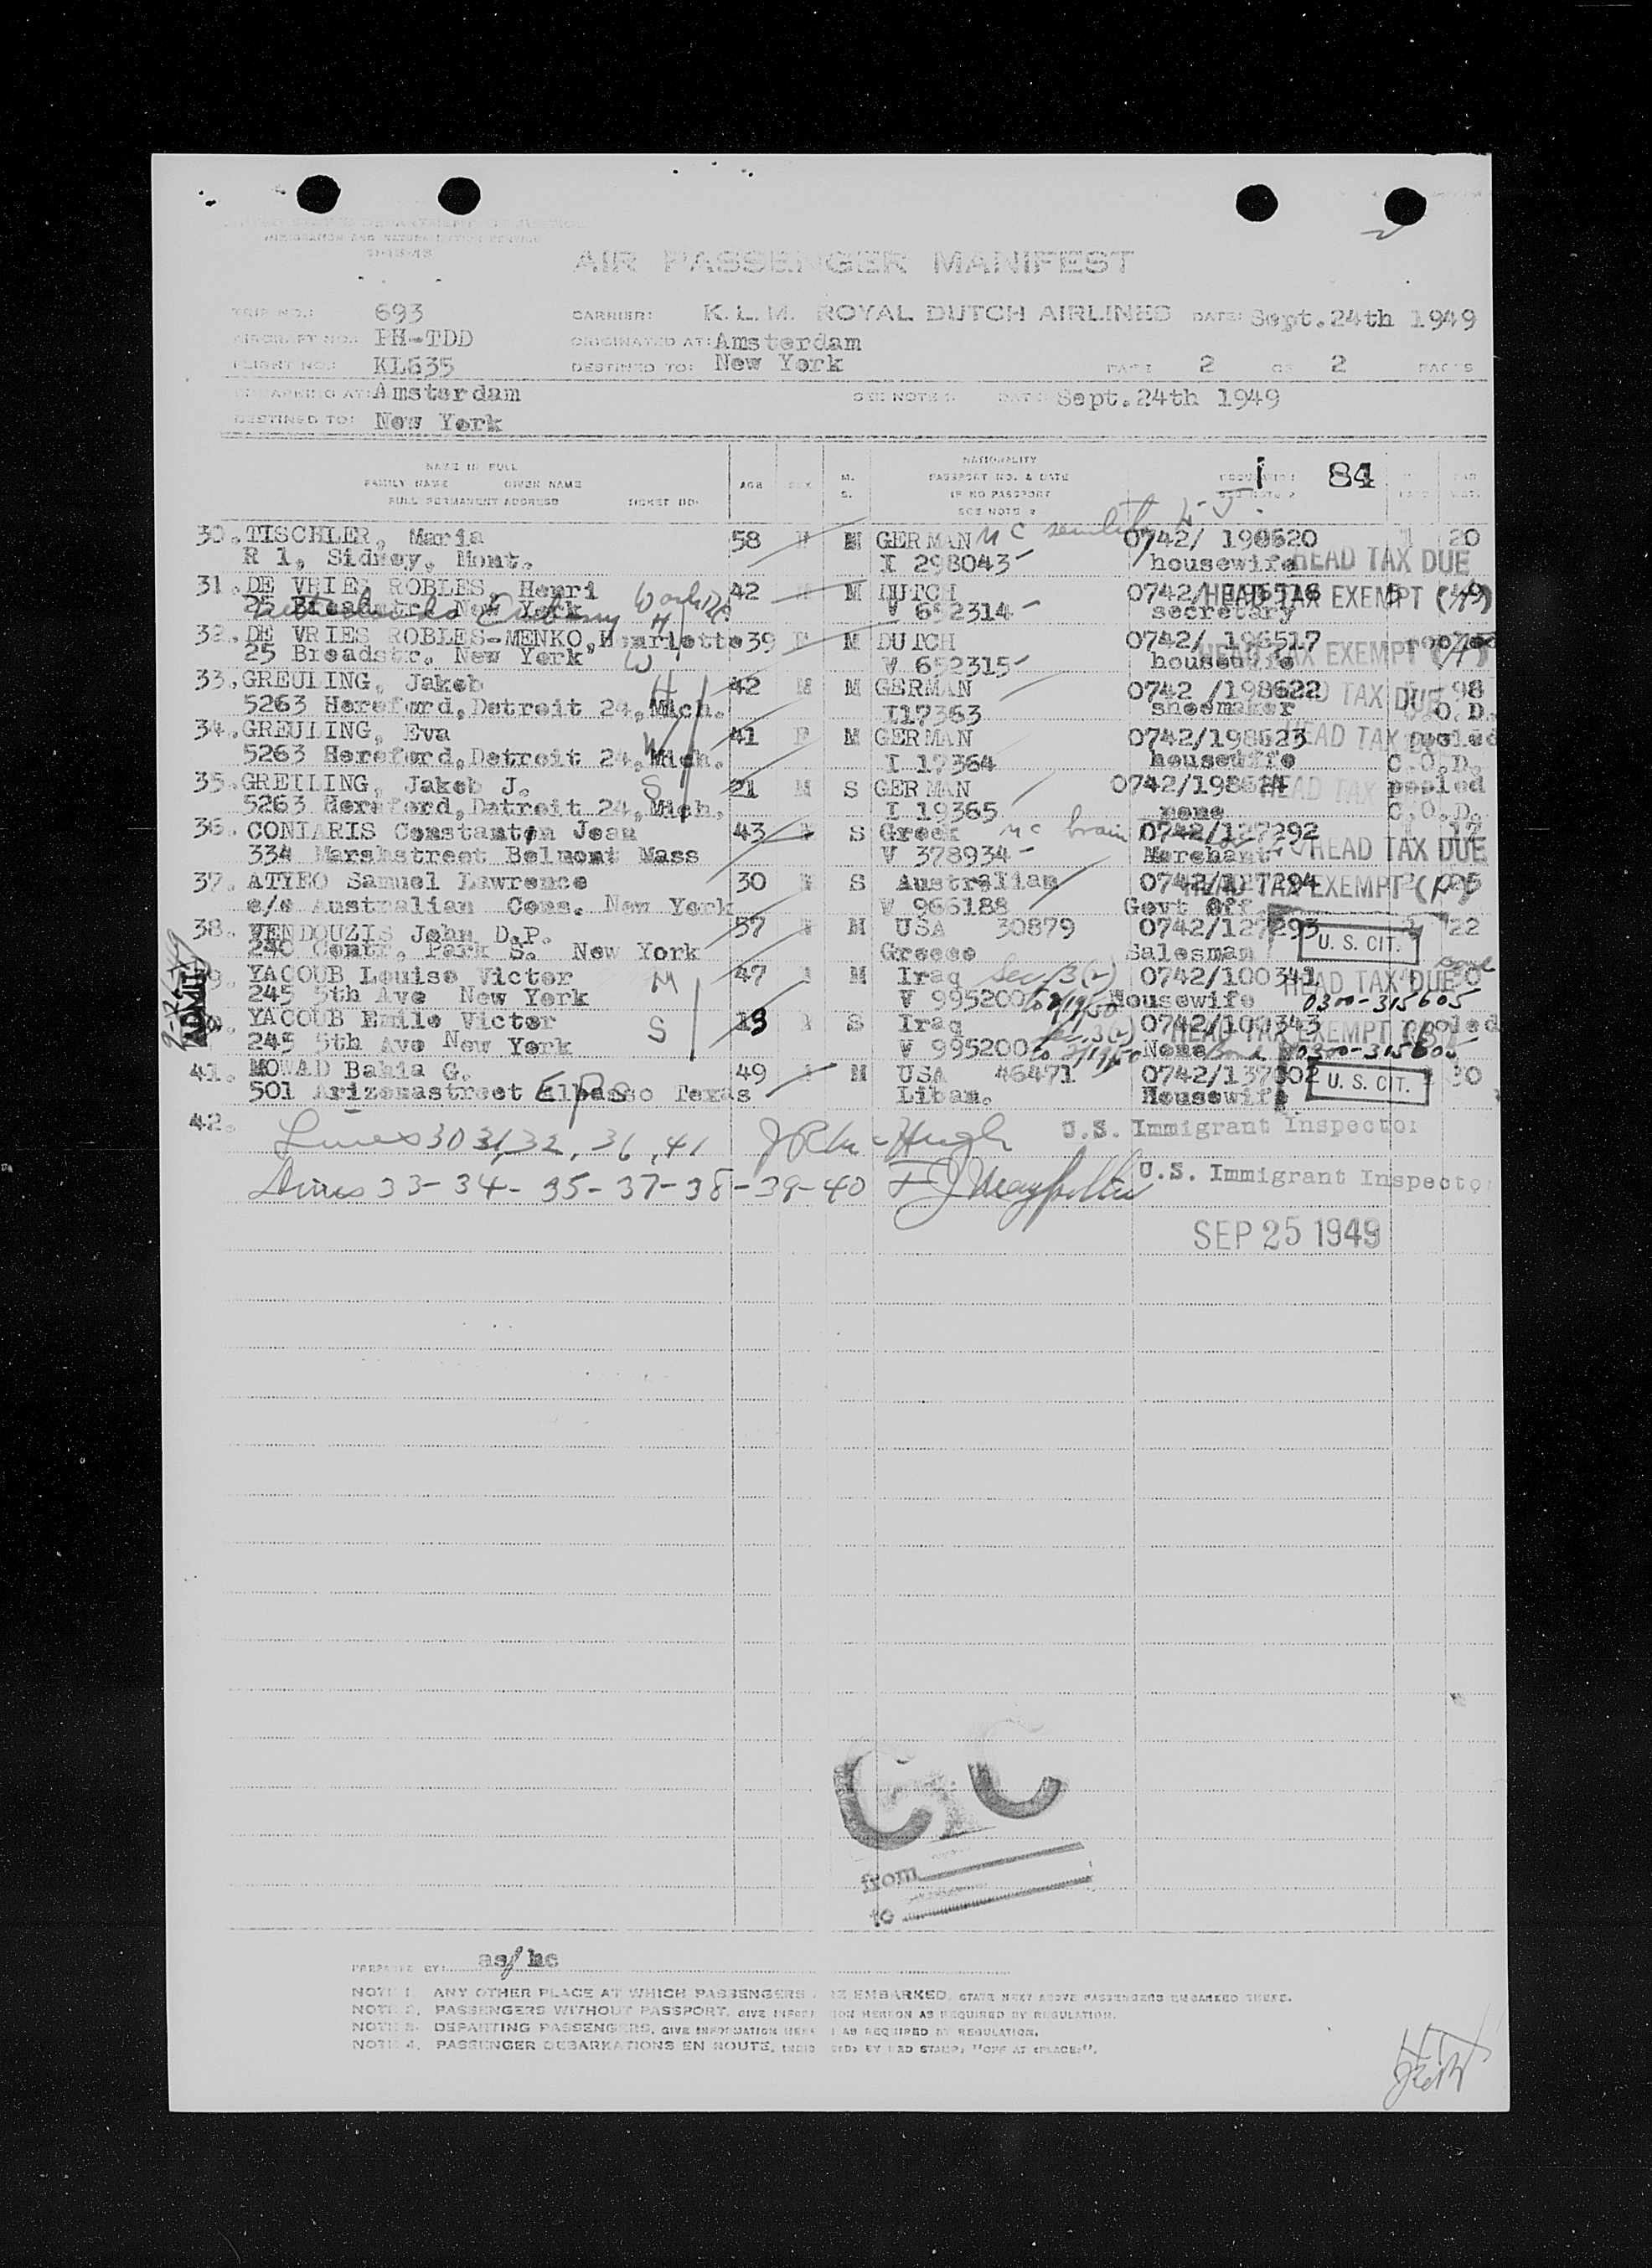 AIR PASSENGER MANIFEST
TRIP NO.: 693 CARRIER: K.L.M. ROYAL DUTCH AIRLINES DATE: Sept.24th 1949
AIRCRAFT NO.: PH-TDD ORIGINATED AT: Amsterdam
FLIGHT NO.: KL635 DESTINED TO: New York PAGE 2 OF 2 PAGES
EMBARKING AT: Amsterdam SEE NOTE 1. DATE: Sept.24th 1949
DESTINED TO: New York
NAME IN FULL
FAMILY NAME GIVEN NAME
FULL PERMANENT ADDRESS TICKET NO.
AGE SEX M. S.
NATIONALITY
PASSPORT NO. & DATE
IF NO PASSPORT
SEE NOTE 2
1 84
30. TISCHLER, Maria 58 F M GERMAN 0742/ 198620 20
R 1, Sidney, Mont. I 298043 housewife HEAD TAX DUE
31. DE VRIES ROBLES, Henri 42 M M DUTCH 0742/196516 HEAD TAX EXEMPT
25 Broadstr. New York V 652314 secretary
Netherlands Embassy Wash DC H
32. DE VRIES ROBLES-MENKO, Henriette 39 F M DUTCH 0742/ 196517
25 Broadstr. New York W V 652315 housewife HEAD TAX EXEMPT
33. GREULING, Jakob H 42 M M GERMAN 0742 /198622 HEAD TAX DUE 98
5263 Hereford, Detroit 24, Mich. I17363 shoemaker C.O.D.
34. GREULING, Eva W 41 F M GERMAN 0742/198623 HEAD TAX pooled
5263 Hereford, Detroit 24, Mich. I 17364 housewife C.O.D.
35. GREILING, Jakob J. S 21 M S GERMAN 0742/198624 HEAD TAX pooled
5263 Hereford, Detroit 24, Mich. I 19365 none C.O.D.
36. CONIARIS Constantin Jean 43 S Greek 0742/127292 17
334 Marshstreet Belmont Mass V 378934 Merchant HEAD TAX DUE
37. ATYEO Samuel Lawrence 30 S Australian 0742/127294 HEAD TAX EXEMPT 25
c/o Australian Cons. New York V 966188 Govt Off.
38. VENDOUZIS John D.P. 57 M USA 30879 0742/127293 U. S. CIT. 22
240 Centr. Park S. New York Greece Salesman
39. YACOUB Louise Victor M 47 M Iraq Sec 3(2) 0742/100341 HEAD TAX DUE 30
245 5th Ave New York V 995200 Housewife 0300-315605
ADMIT
40. YACOUB Emile Victor S 13 S Iraq 0742/100343 HEAD TAX EXEMPT pooled
245 5th Ave New York V 995200 None Bond 0300-315605
41. MOWAD Bahia G. 49 M USA 46471 U. S. CIT. 30
501 Arizonastreet Elpasso Texas Liban. Housewife
42.
Lines 30 31, 32, 36, 41 U.S. Immigrant Inspector
Lines 33-34-35-37-38-39-40 U.S. Immigrant Inspector
SEP 25 1949
from
to
PREPARED BY: as/hc
NOTE 1. ANY OTHER PLACE AT WHICH PASSENGERS ARE EMBARKED, STATE NEXT ABOVE PASSENGERS EMBARKED THERE.
NOTE 2. PASSENGERS WITHOUT PASSPORT, GIVE INFORMATION HEREON AS REQUIRED BY REGULATION.
NOTE 3. DEPARTING PASSENGERS, GIVE INFORMATION HEREON AS REQUIRED BY REGULATION.
NOTE 4. PASSENGER DEBARKATIONS EN ROUTE, INDICATED BY RED STAMP, "OFF AT (PLACE)".